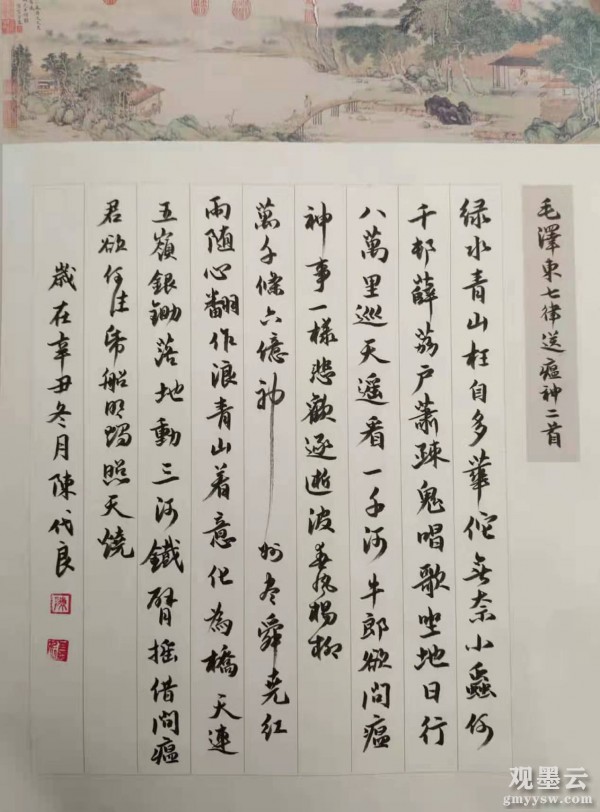 毛澤東七律送瘟神二首
绿水青山枉自多華佗无奈小蟲何
千邨薜荔户蕭疎鬼唱歌坐地日行
八萬里巡天遥看一千河牛郎欲問瘟
神事一樣悲歡逐逝波春风楊柳
萬千條六億神州尽舜尧红
雨随心翻作浪青山着意化為橋天連
五嶺銀鋤落地動三河鐵臂摇借問瘟
君欲何往帋船明燭照天燒
歲在辛丑冬月陳代良
观墨云
gmyysw.com